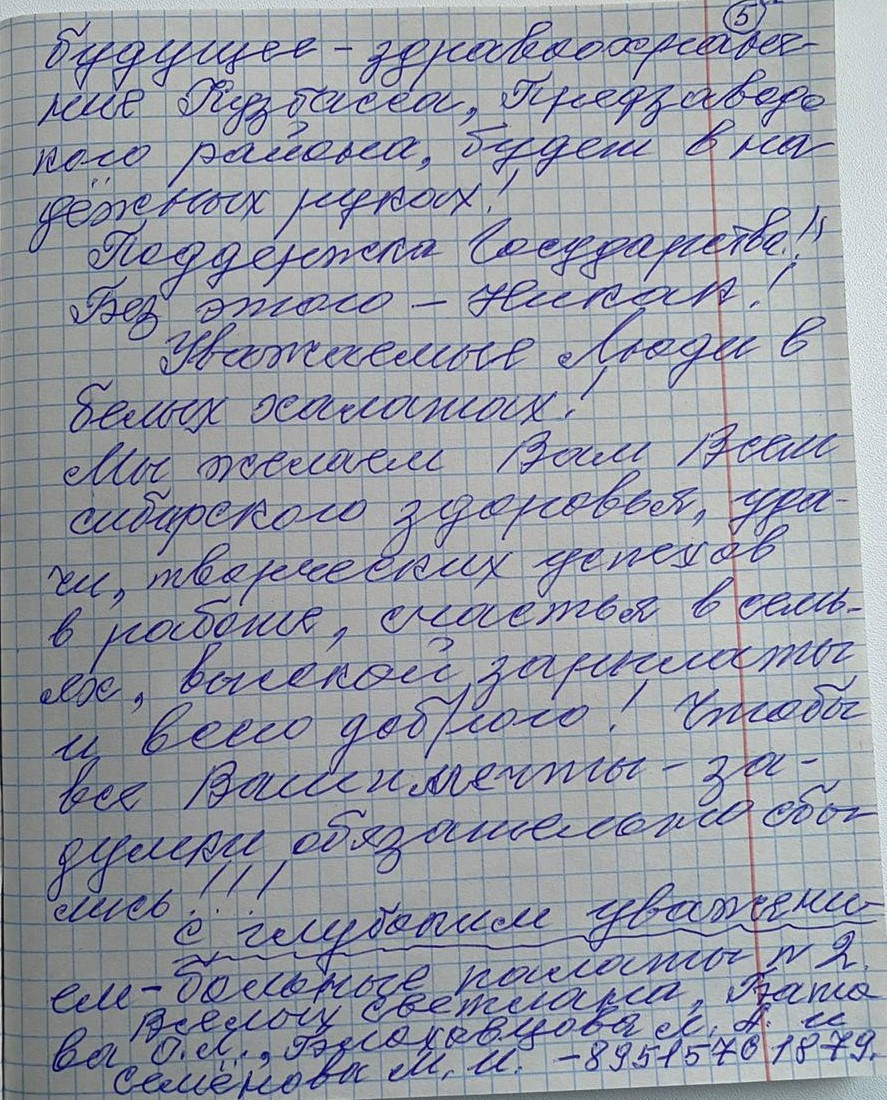 5
будущее - здравоохране-
ние Кузбасса, Предзаводс
кого района, будет в на
дёжных руках!
Поддержка Государства!!
Без этого - никак!
Уважаемые Люди в
белых халатах!
Мы желаем Вам Всем
сибирского здоровья, уда-
чи, творческих успехов
в работе, счастья в семь-
ях, высокой зарплаты
и всего доброго! Чтобы
все Ваши мечты - за-
думки обязательно сбы-
лись!!!
С глубоким уважени-
ем - больные палаты № 2
Светлана,
ва О.Л., Л. А. и
Семёнова М. И. - 89515761879.